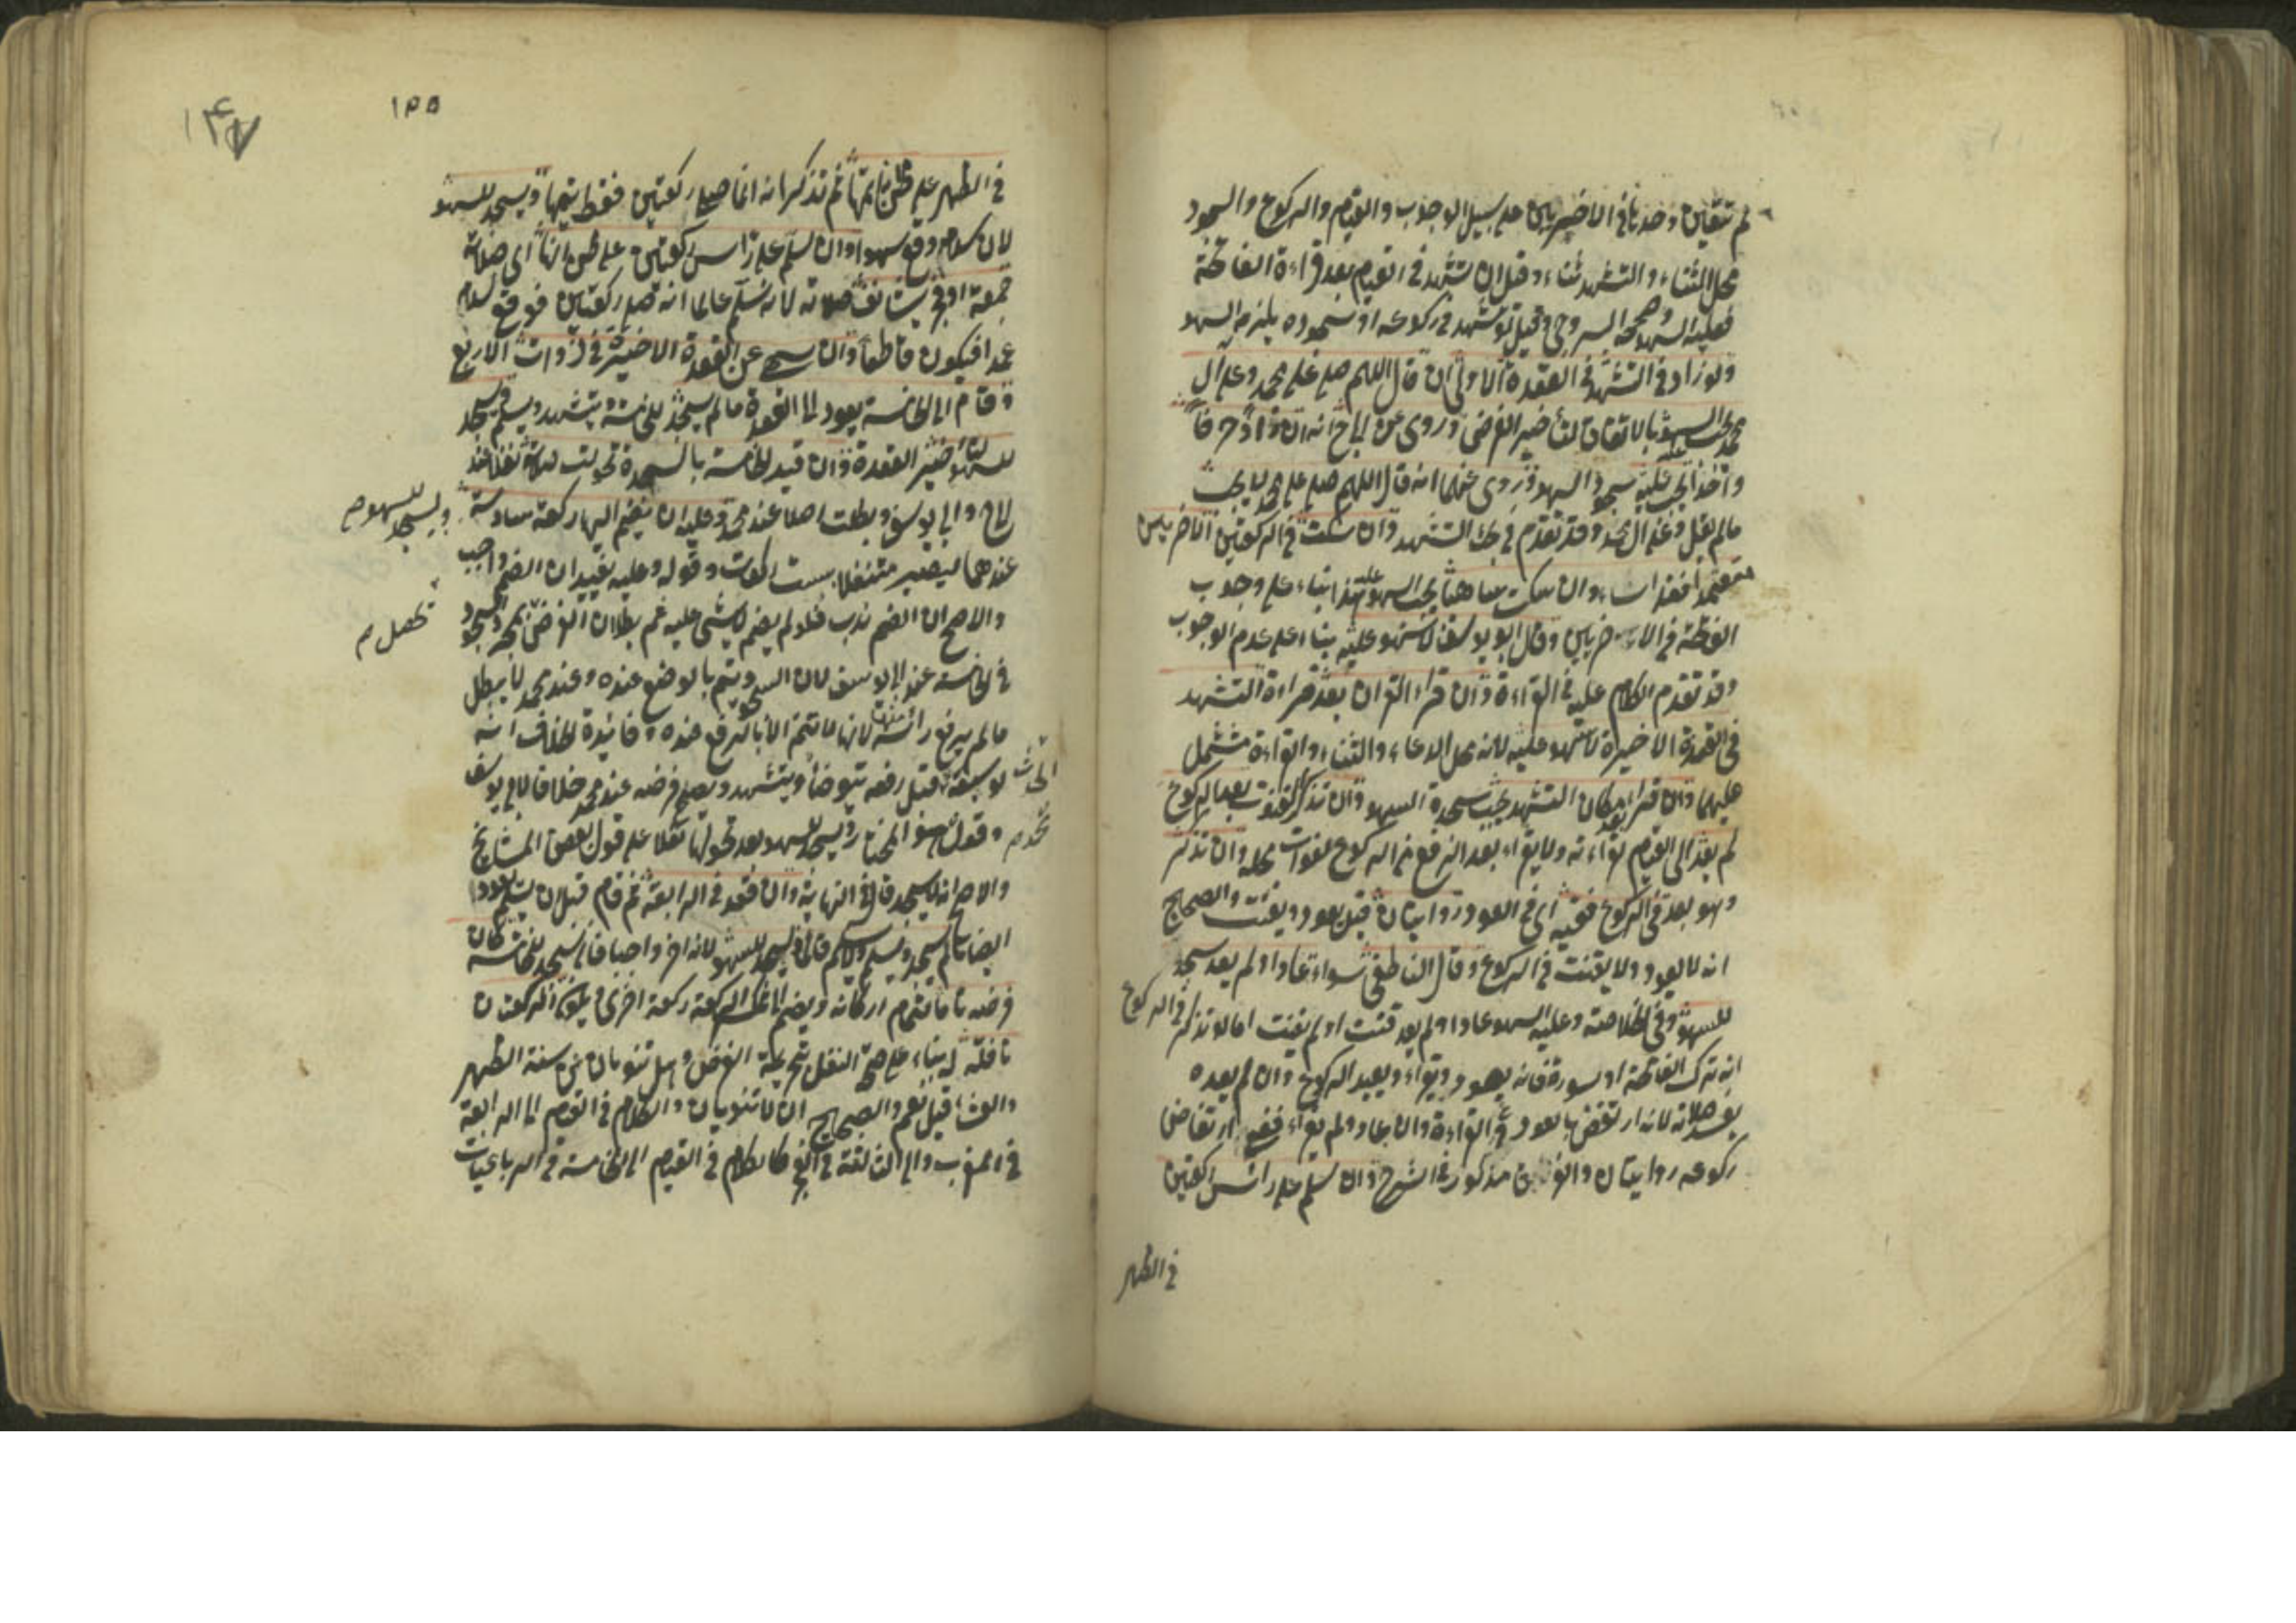 لم تتعين وحدها في الاخيريين على سبيل الوجوب والقيام والركوع والسجود
محل الثناء والتشهد ثناء وقيل ان تشهد في القيام بعد قراءة الفاتحة
فعليه السهو وصححه السروجي وقيل لو تشهد في ركوعه او سجوده يلزمه السهو
ولو زاد في التشهد في القعدة الاولى ان قال اللهم صل على محمد وعلى ال
محمد يجب السهو بالاتفاق لتأخير الفرض وروي عن ابي ح انه ان زاد حرفا
واحدا يجب عليه سجود السهو وروي عنهما انه قال اللهم صل على محمد لا يجب
ما لم يقل وعلى ال محمد وقد تقدم في بحث التشهد وان سكت في الركعتين الاخريين
متعمدا فقد اساء وان سكت ساهيا يجب السهو عليه هذا بناء على وجوب
الفاتحة في الاخريين وقال ابو يوسف لا سهو عليه بناء على عدم الوجوب
وقد تقدم الكلام عليه في القراءة وان قرا القران بعد قراءة التشهد
في القعدة الاخيرة لا سهو عليه لانه محل الدعاء والثناء والقراءة تشتمل
عليهما وان قرا مكان التشهد يجب سجدة السهو وان تذكر القنوت بعد الركوع
لم يعد الى القيام لقراءته ولا يقراء بعد الرفع من الركوع لفوات محله وان تذكر
وهو بعد في الركوع ففيه اي في العود روايتان قيل يعود ويقنت والصحيح
انه لا يعود ولا يقنت في الركوع وقال الناطفي سواء عاد او لم يعد سجد
للسهو وفي الخلاصة وعليه السهو عاد او لم يعد قنت او لم يقنت اما لو تذكر في الركوع
انه ترك الفاتحة او سورة فانه يعود ويقراء ويعيد الركوع وان لم يعده
يفسد صلاته لانه ارتفض بالعود في القراءة وان عاد ولم يقراء ففي ارتفاض
ركوعه روايتان والفرق مذكور في الشرح وان سلم على راس ركعتين
في الظهر
١٥٥
١٤٧
في الظهر على ظن انه اتمها ثم تذكر انه انما صلى ركعتين فقط يتمها ويسجد للسهو
لان سلامه وقع سهوا وان سلم على راس ركعتين على ظن انها اي صلاته
جمعة او فجر يستانف صلاته لانه سلم عالما انه صلى ركعتين فوقع سلامه
عمدا فيكون قاطعا وان سهى عن القعدة الاخيرة في ذوات الاربع
وقام الى الخامسة يعود الى القعدة ما لم يسجد للخامسة ويتشهد ويسلم ويسجد
للسهو لتأخير القعدة وان قيد الخامسة بالسجدة تحولت صلاته نفلا عند
ابي ح وابي يوسف وبطلت اصلا عند محمد وعليه ان يضم اليها ركعة سادسة
ويسجد للسهو صح
عندهما ليصير متنفلا بست ركعات وقوله وعليه يفيد ان الضم واجب
والاصح ان الضم ندب فلو لم يضم لا شيء عليه ثم بطلان الفرض بمجرد السجود
تحصل م
في الخامسة عند ابي يوسف لان السجود يتم بالوضع عنده وعند محمد لا يبطل
ما لم يرفع راسه منها لانها لا تتم الا بالرفع عنده وفائدة الخلاف انه
لو سبقه الحدث قبل رفعه يتوضأ ويتشهد ويصلي فرضه عند محمد خلافا لابي يوسف
وقول محمد هو المختار ويسجد للسهو بعد تحولها نفلا على قول بعض المشايخ
والاصح انه لا يسجد قال في النهاية وان قعد في الرابعة ثم قام قبل ان يسلم يعود
ايضا ما لم يسجد ويسلم ويسجد للسهو لانه اخر واجبا فان سجد للخامسة كان
فرضه تاما لتمام اركانه ويضم الى تلك الركعة ركعة اخرى ويكون الركعتان
نافلة له بناء على صحة النفل بتحريمة الفرض وهل تنوبان عن سنة الظهر
والعشاء قيل نعم والصحيح ان لا تنوبان والكلام في القيام الى الرابعة
في المغرب والى الثالثة في الفجر كالكلام في القيام الى الخامسة في الرباعيات